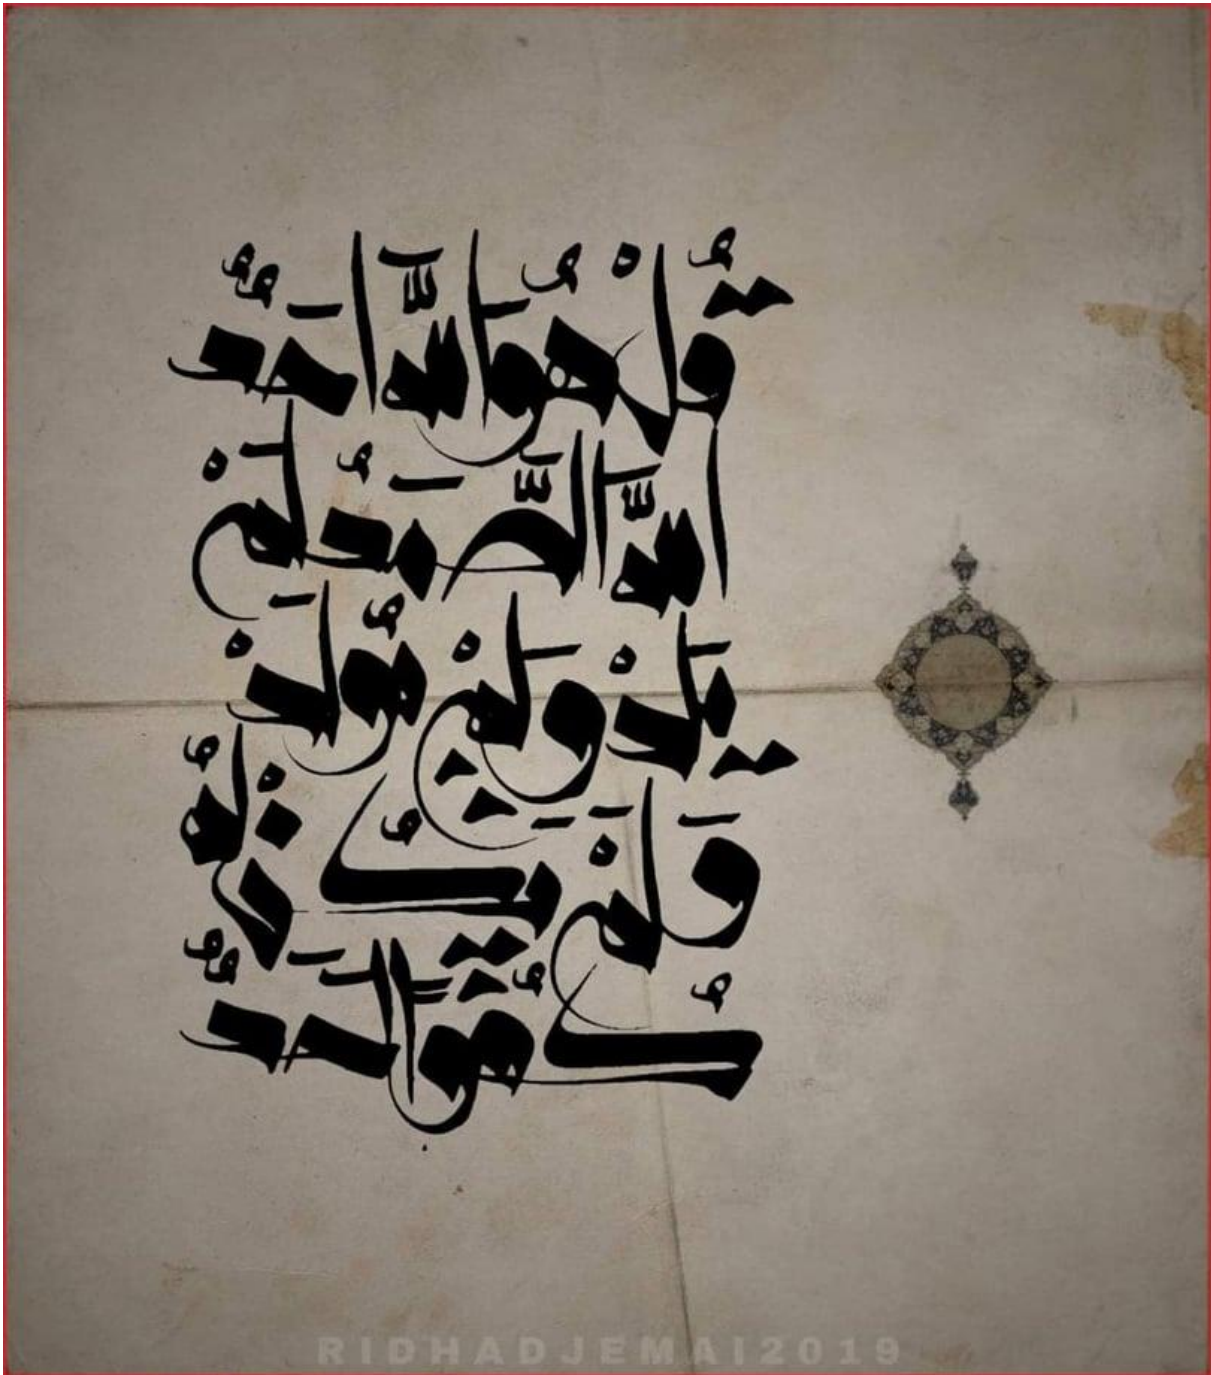 قُلْ هُوَ اللَّهُ أَحَدٌ
اللَّهُ الصَّمَدُ لَمْ
يَلِدْ وَلَمْ يُولَدْ
وَلَمْ يَكُن لَّهُ
كُفُوًا أَحَدٌ
RIDHADJEMAI2019